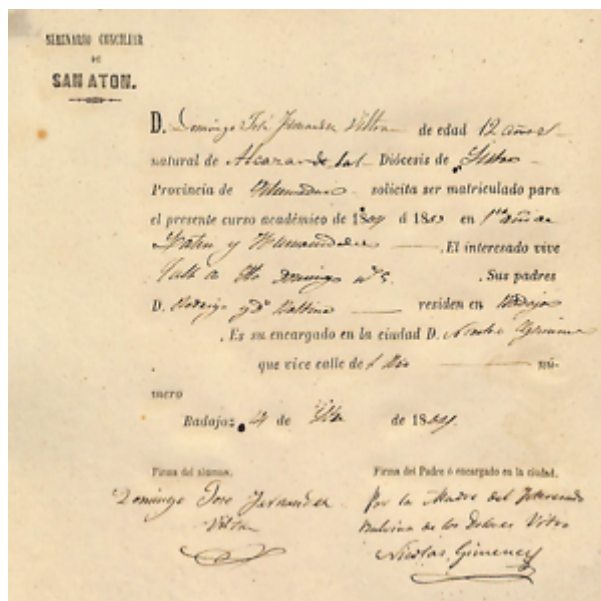 SEMINARIO CONCILIAR
DE
SAN ATON.
D. Domingo José Fernandez Viltra de edad 12 años
natural de Alcazar do Sal Diócesis de
Provincia de solicita ser matriculado para
el presente curso académico de 18 á 18 en 1er año de
Latin y Humanidades . El interesado vive
Calle de Sto Domingo nº 5. . Sus padres
D. Rodrigo y Dª Balbina residen en Badajoz
. Es su encargado en la ciudad D. Nicolas Gimenez
que vive calle de nú-
mero
Badajoz de de 18
Firma del alumno.
Firma del Padre ó encargado en la ciudad.
Domingo José Fernandez
Por la Madre del Interesado
de los Dolores
Nicolas Gimenez